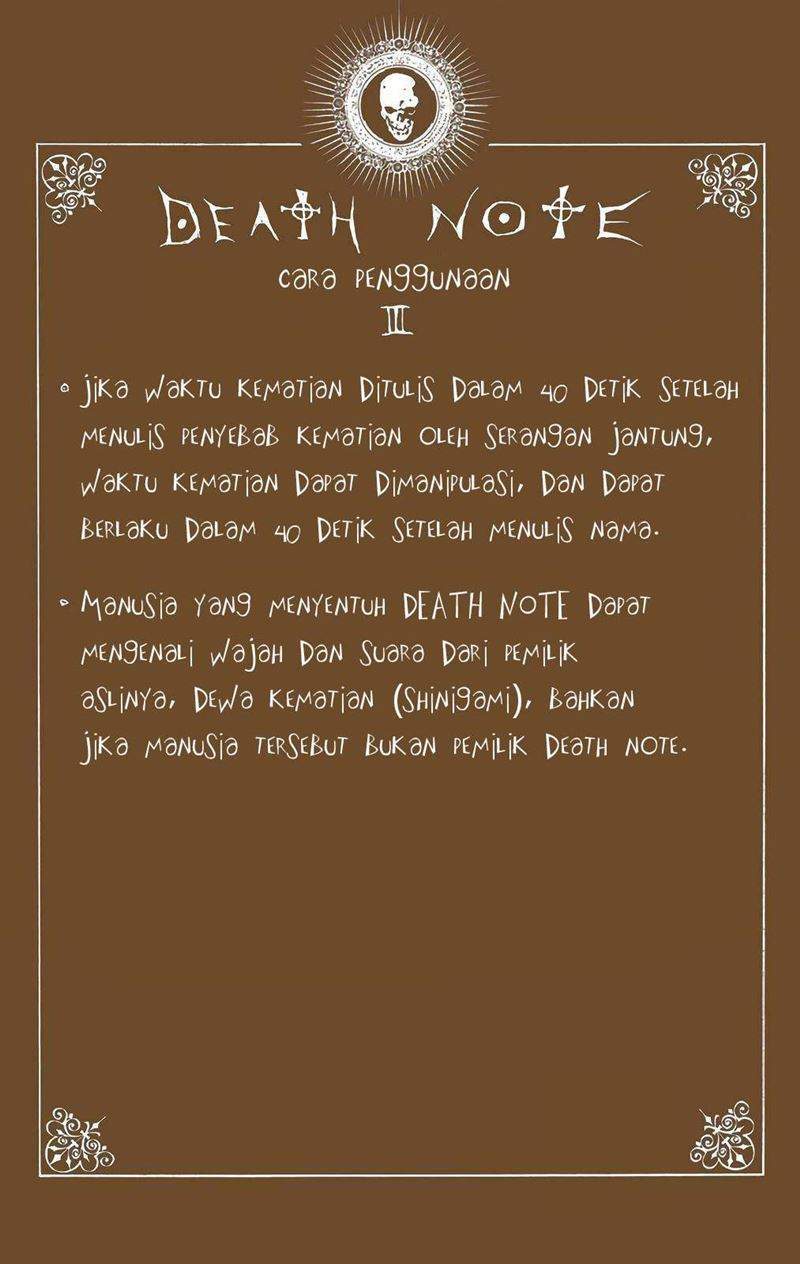 DEATH NOTE
CARA PENGGUNAAN
III
• JIKA WAKTU KEMATIAN DITULIS DALAM 40 DETIK SETELAH
MENULIS PENYEBAB KEMATIAN OLEH SERANGAN JANTUNG,
WAKTU KEMATIAN DAPAT DIMANIPULASI, DAN DAPAT
BERLAKU DALAM 40 DETIK SETELAH MENULIS NAMA.
• MANUSIA YANG MENYENTUH DEATH NOTE DAPAT
MENGENALI WAJAH DAN SUARA DARI PEMILIK
ASLINYA, DEWA KEMATIAN (SHINIGAMI), BAHKAN
JIKA MANUSIA TERSEBUT BUKAN PEMILIK DEATH NOTE.